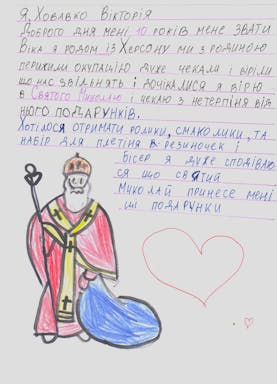 Я, Ховавко Вікторія
Доброго дня мені 10 років мене звати
Віка я родом із Херсону ми з родиною
пережили окупацію дуже чекали і вірили
що нас звільнять і дочікалися я вірю
в Святого Миколая і чекаю з нетерпіня від
нього подарунків.
Хотілося отримати ролики, смаколики, та
набір для плетіня в резиночек і
бісер я дуже сподіваю
ся що святий
Миколай принесе мені
ці подарунки